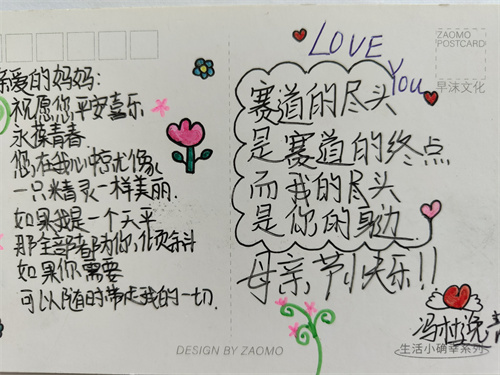 亲爱的妈妈:
祝愿您,平安喜乐,
永葆青春
您,在我心
一只精灵一样美丽.
如果我是一个天平
那全部都为你倾斜
如果你需要
可以随时带走我的一切.
LOVE
You
ZAOMO
POSTCARD
早沫文化
赛道的尽头
是赛道的终点
而我的尽头
是你的身边
母亲节快乐!!
生活小确幸系列
DESIGN BY ZAOMO